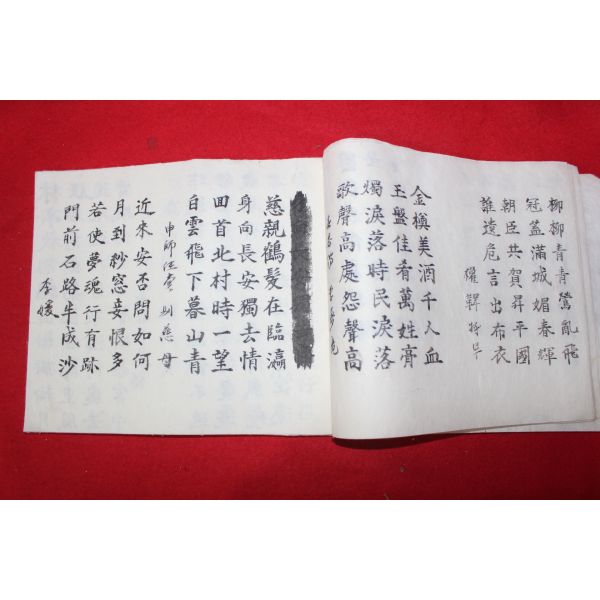 柳柳青青鶯亂飛
冠蓋滿城媚春輝
朝臣共賀昇平國
誰遣危言出布衣
權韠
金樽美酒千人血
玉盤佳肴萬姓膏
燭淚落時民淚落
歌聲高處怨聲高
慈親鶴髮在臨瀛
身向長安獨去情
回首北村時一望
白雲飛下暮山青
申師任堂 別慈母
近來安否問如何
月到紗窓妾恨多
若使夢魂行有跡
門前石路半成沙
李媛